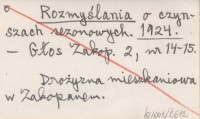 Rozmyślania o czyn-
szach sezonowych. 1924.
– Głos Zakop. 2, nr 14-15.
Drożyzna mieszkaniowa
w Zakopanem.